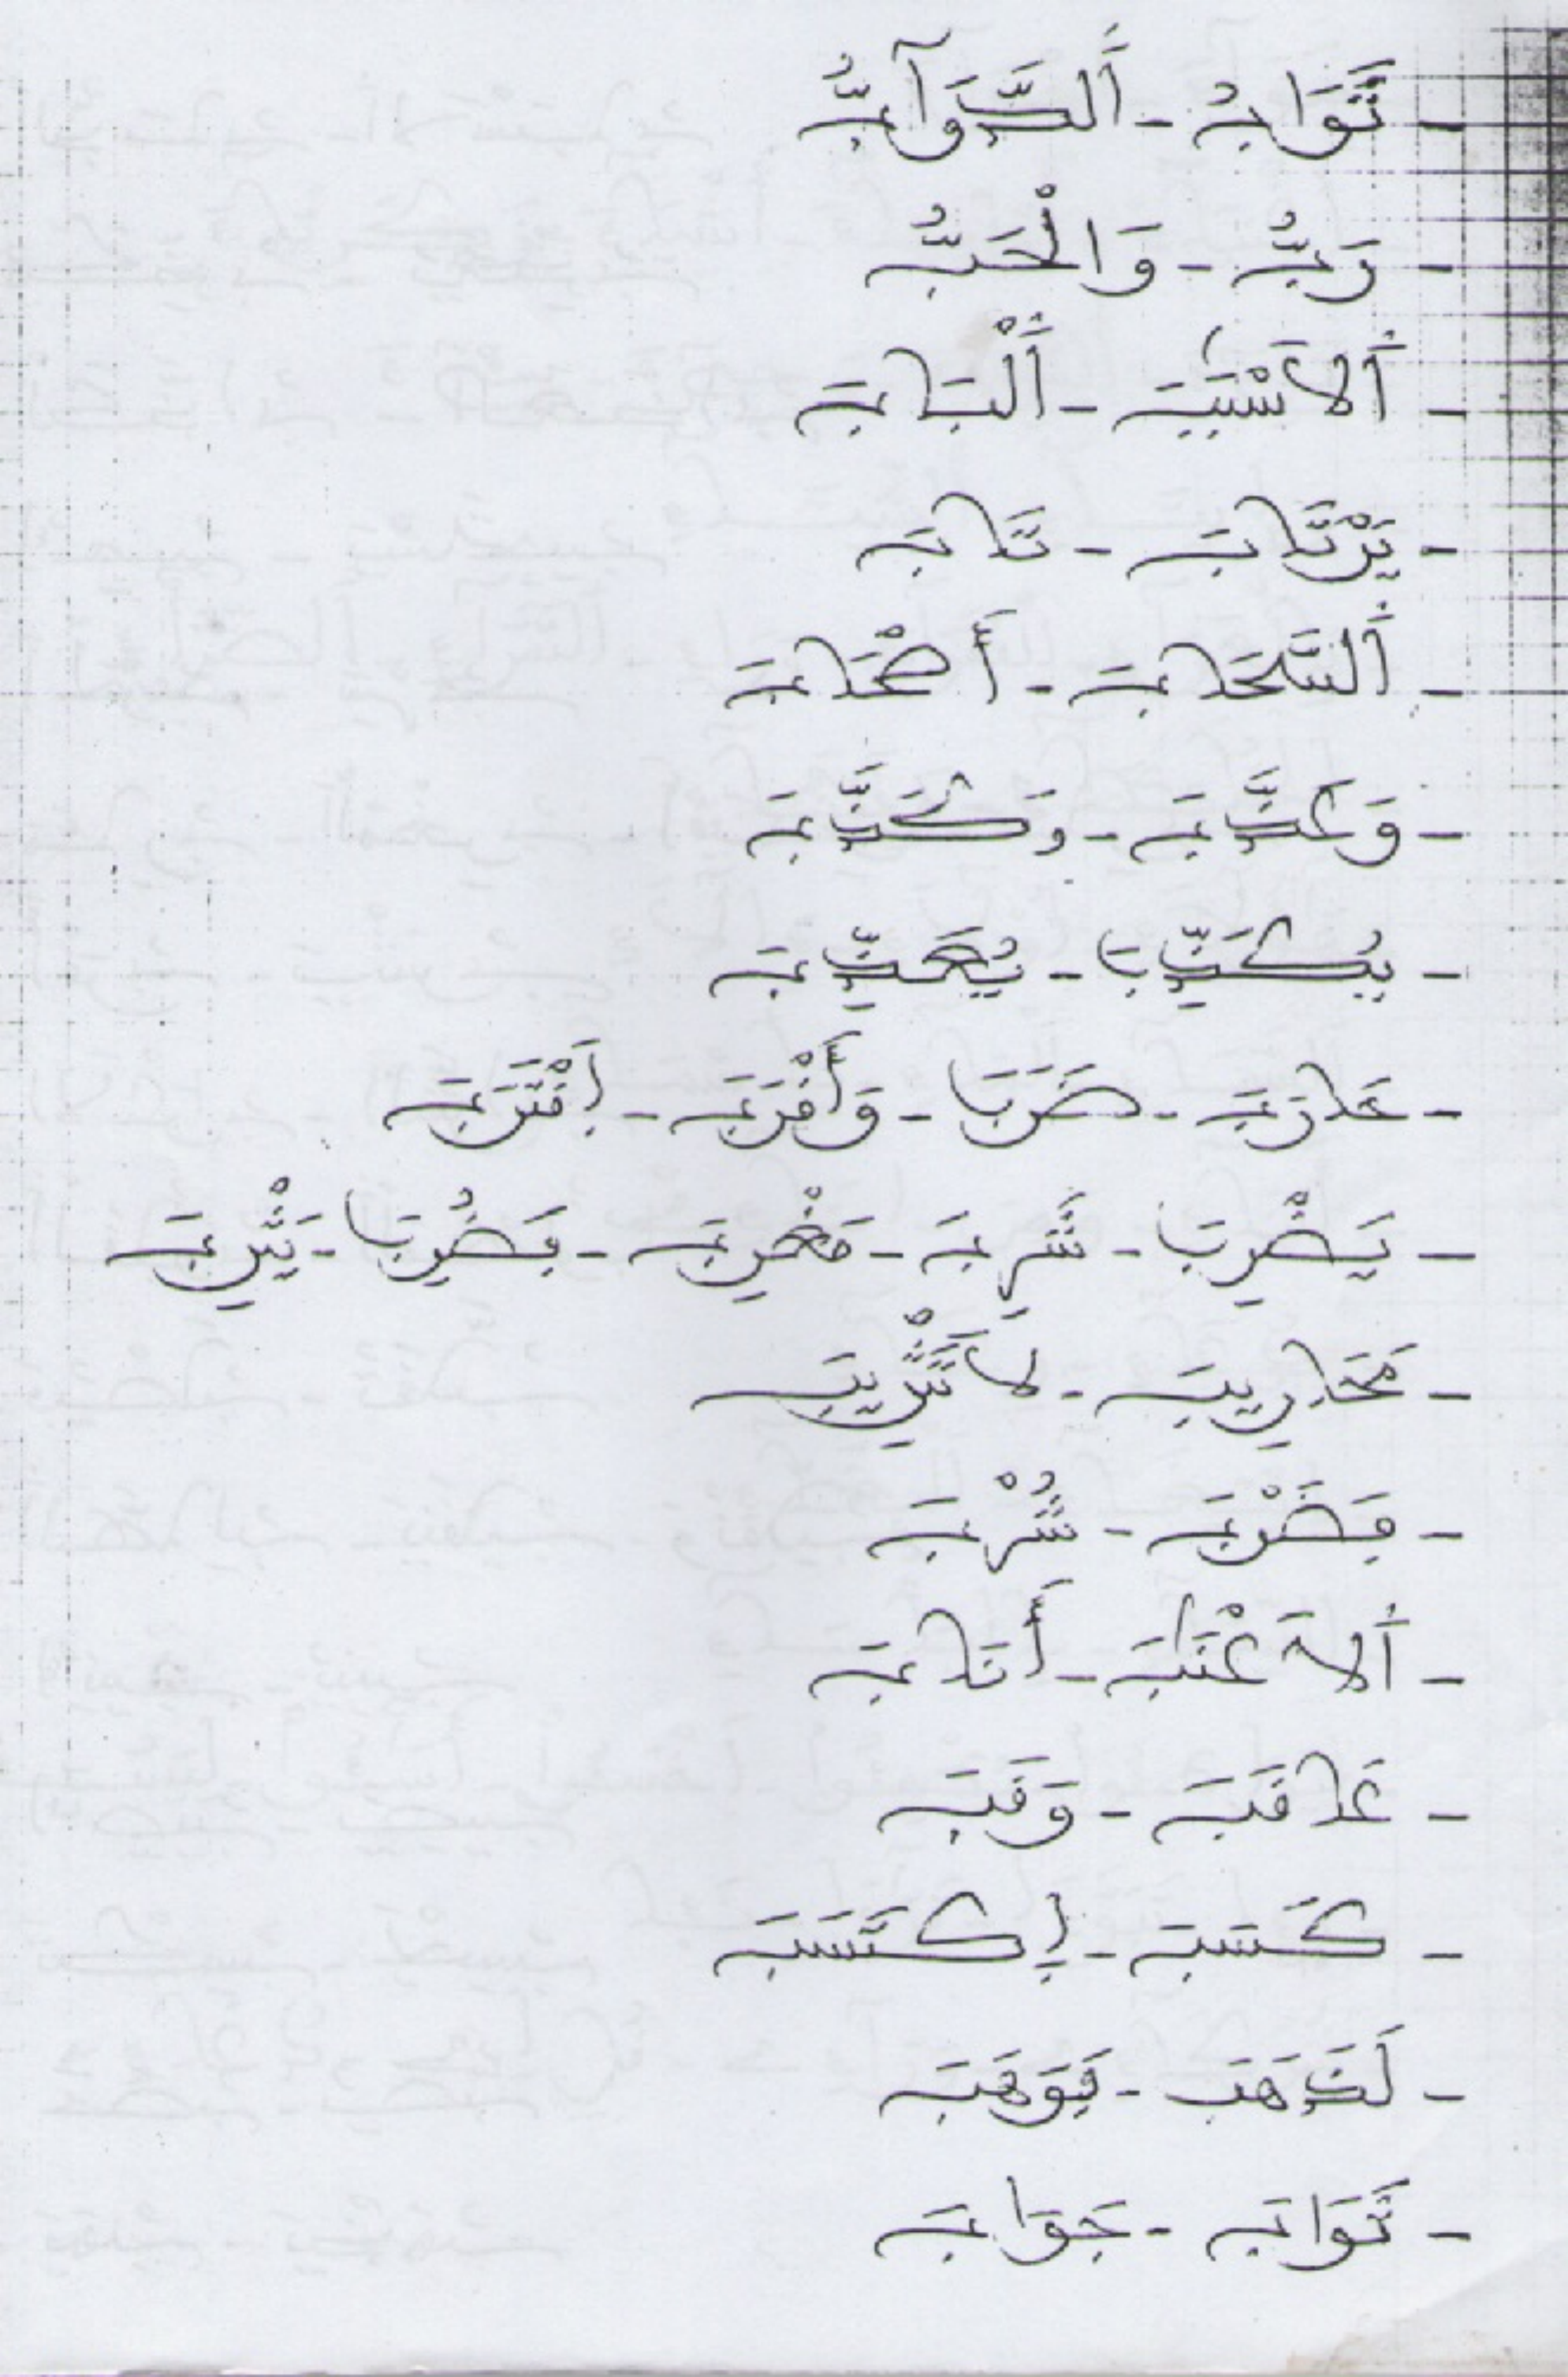 - ثَوَابُ - أَلدَّوَآبُّ
- رَبُّ - وَالْحَبُّ
- أَلاَسْبَٰبَ - أَلْبَابَ
- يَرْتَابَ - تَابَ
- أَلسَّحَابَ - أَصْحَابَ
- وَعَذَّبَ - وَكَذَّبَ
- يُكَذِّبَ - يُعَذِّبَ
- ضَرَبَ - وَأَقْرَبَ - إَقْتَرَبَ
- يَضْرِبَ - شَرِبَ - مَغْرِبَ - فَضُرِبَ - يَثْرِبَ
- مَحَارِيبَ - لاَ تَثْرِيبَ
- فَضَرْبَ - شُرْبَ
- أَلاَعْنَٰبَ - أَنَابَ
- عَاقَبَ - وَقَبَ
- كَسَبَ - إكْتَسَبَ
- لَذَهَبَ - فَوَهَبَ
- ثَوَابَ - جَوَابَ